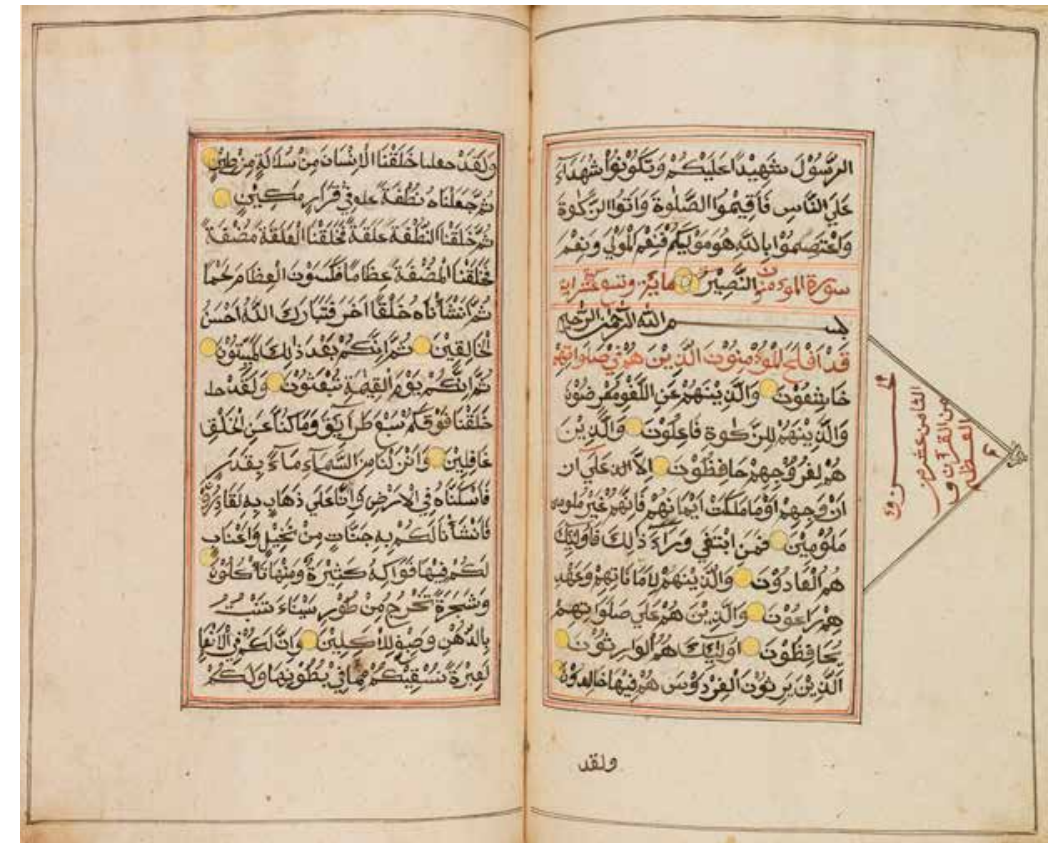 الرَّسُوْلَ شَهِيْدًا عَلَيْكُمْ وَتَكُوْنُوْا شُهَدَاءَ
عَلَي النَّاسِ فَاَقِيْمُوا الصَّلٰوةَ وَاٰتُوا الزَّكٰوةَ
وَاعْتَصِمُوْا بِاللّٰهِ هُوَ مَوْلٰيكُمْ فَنِعْمَ الْمَوْلٰي وَنِعْمَ
النَّصِيْرُ سورة المؤمنون
الله الرحمن الرحيم
قَدْ اَفْلَحَ الْمُؤْمِنُوْنَ الَّذِيْنَ هُمْ فِيْ صَلَاتِهِمْ
خَاشِعُوْنَ وَالَّذِيْنَ هُمْ عَنِ اللَّغْوِ مُعْرِضُوْنَ
وَالَّذِيْنَ هُمْ لِلزَّكٰوةِ فَاعِلُوْنَ وَالَّذِيْنَ
هُمْ لِفُرُوْجِهِمْ حَافِظُوْنَ اِلَّا عَلَي
اَزْوَجِهِمْ اَوْ مَا مَلَكَتْ اَيْمَانُهُمْ فَاِنَّهُمْ غَيْرُ ملومين
مَلُوْمِيْنَ فَمَنِ ابْتَغَي وَرَآءَ ذٰلِكَ فَاُولٰئِكَ
هُمُ الْعَادُوْنَ وَالَّذِيْنَ هُمْ لِاَمَانَاتِهِمْ وَعَهْدِ
هِمْ رَاعُوْنَ وَالَّذِيْنَ هُمْ عَلَي صَلَوَاتِهِمْ
يُحَافِظُوْنَ اُولٰئِكَ هُمُ الْوَارِثُوْنَ
الَّذِيْنَ يَرِثُوْنَ الْفِرْدَوْسَ هُمْ فِيْهَا خَالِدُوْنَ
ولقد
الثامن عشر من
من القرآن
العظيم
وَلَقَدْ جعلنا خَلَقْنَا الْاِنْسَانَ مِنْ سُلَالَةٍ مِنْ طِيْنٍ
ثُمَّ جَعَلْنَاهُ نُطْفَةً فِيْ قَرَارٍ مَكِيْنٍ
ثُمَّ خَلَقْنَا النُّطْفَةَ عَلَقَةً فَخَلَقْنَا الْعَلَقَةَ مُضْغَةً
فَخَلَقْنَا الْمُضْغَةَ عِظَامًا فَكَسَوْنَ الْعِظَامَ لَحْمًا
ثُمَّ اَنْشَاْنَاهُ خَلْقًا اٰخَرَ فَتَبَارَكَ اللّٰهُ اَحْسَنُ
الْخَالِقِيْنَ ثُمَّ اِنَّكُمْ بَعْدَ ذٰلِكَ لَمَيِّتُوْنَ
ثُمَّ اِنَّكُمْ يَوْمَ الْقِيٰمَةِ تُبْعَثُوْنَ وَلَقَدْ
خَلَقْنَا فَوْقَكُمْ سَبْعَ طَرَآئِقَ وَمَا كُنَّا عَنِ الْخَلْقِ
غَافِلِيْنَ وَاَنْزَلْنَا مِنَ السَّمَآءِ مَاءً بِقَدَرٍ
فَاَسْكَنَّاهُ فِي الْاَرْضِ وَاِنَّا عَلَي ذَهَابٍ بِهِ لَقَادِرُوْنَ
فَاَنْشَاْنَا لَكُمْ بِهِ جَنَّاتٍ مِنْ نَخِيْلٍ وَاَعْنَابٍ
لَكُمْ فِيْهَا فَوَاكِهُ كَثِيْرَةٌ وَمِنْهَا تَاْكُلُوْنَ
وَشَجَرَةً تَخْرُجُ مِنْ طُوْرِ سَيْنَاءَ تَنْبُتُ
بِالدُّهْنِ وَصِبْغٍ لِلْاٰكِلِيْنَ وَاِنَّ لَكُمْ فِي الْاَنْعَا
لَعِبْرَةً نُسْقِيْكُمْ مِمَّا فِيْ بُطُوْنِهَا وَلَكُمْ